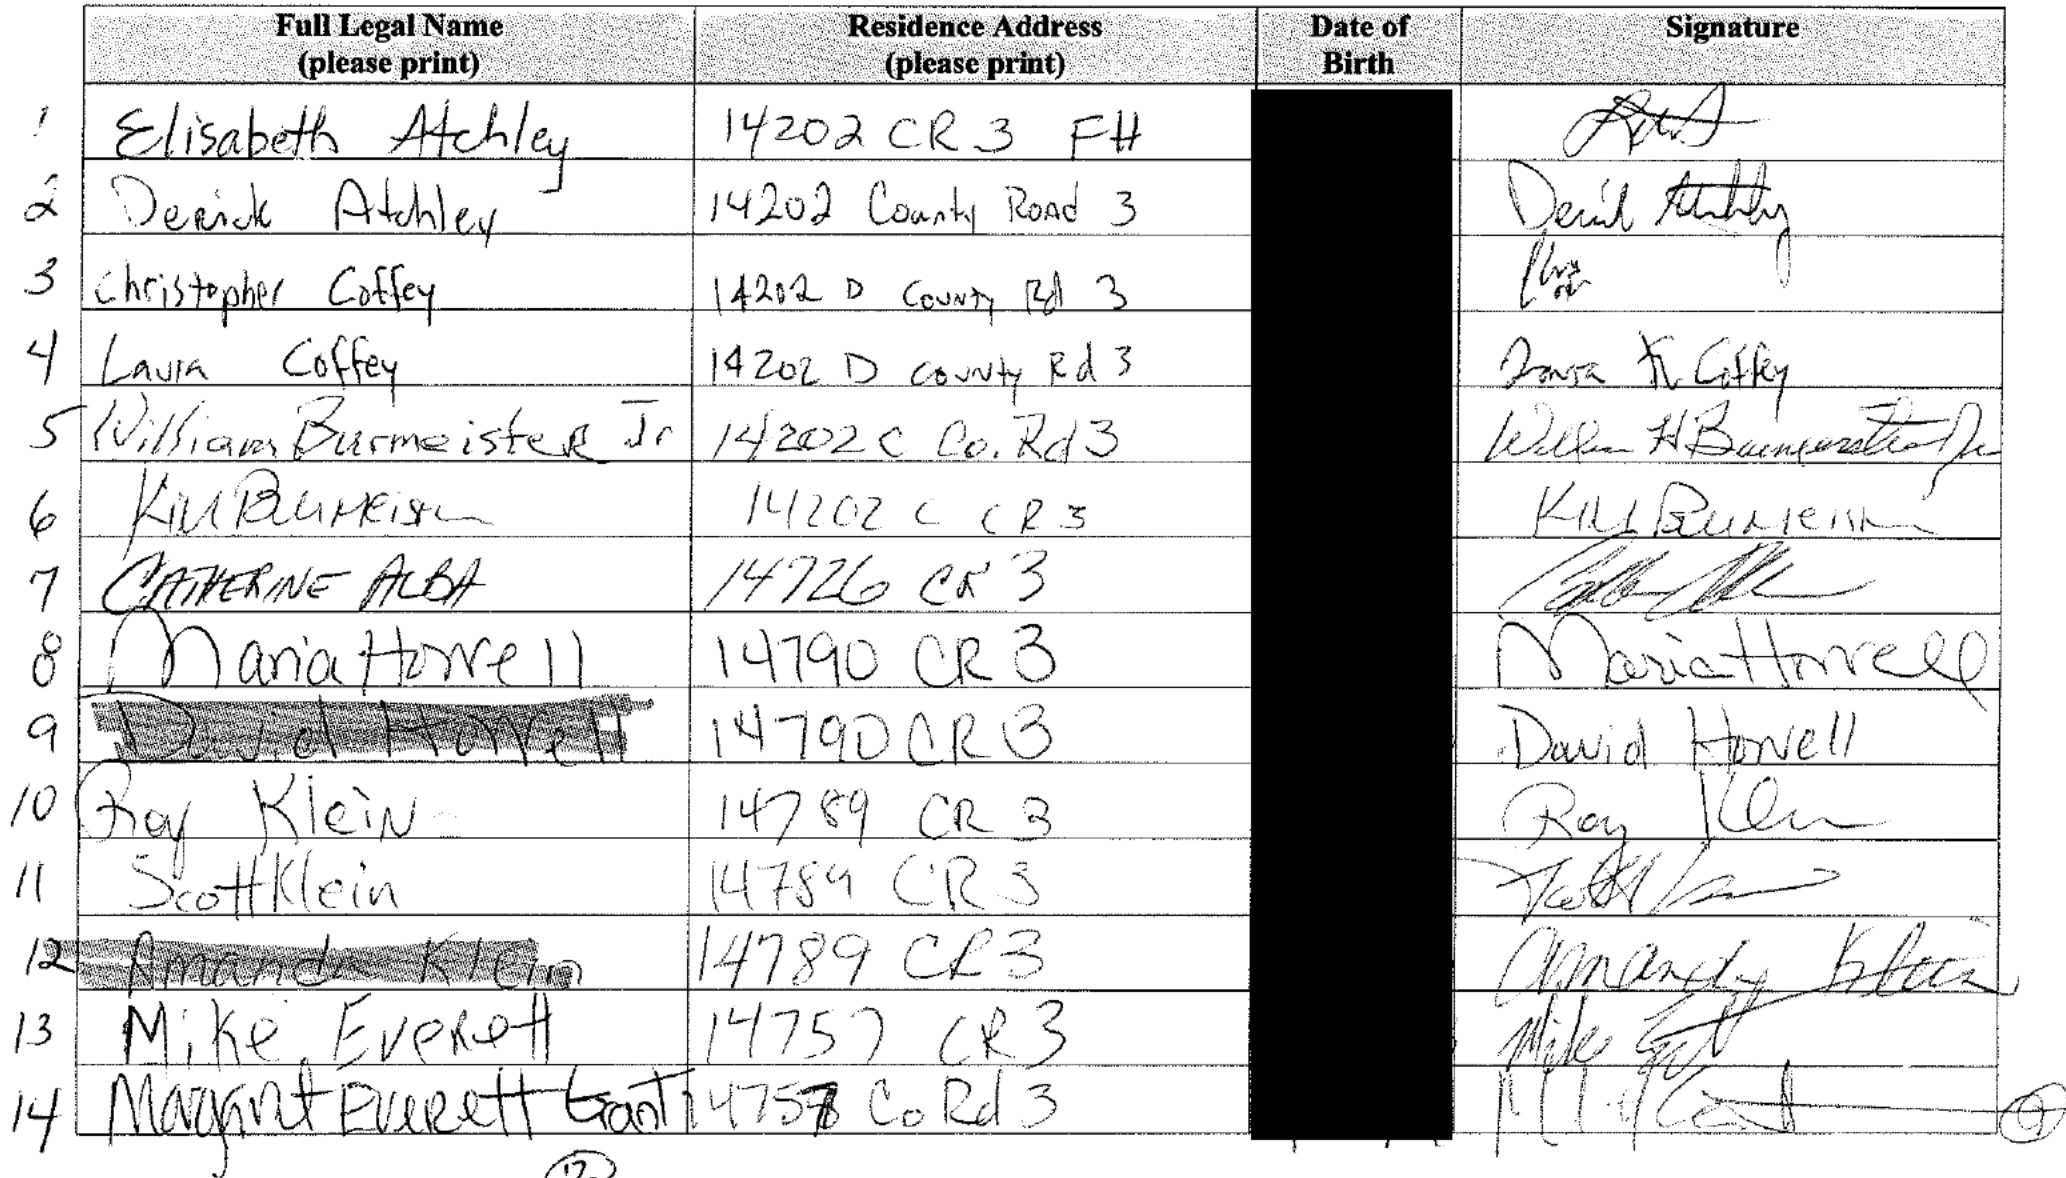 Full Legal Name (please print) Residence Address (please print) Date of Birth Signature
1 Elisabeth Atchley 14202 CR 3 FH
2 Derrick Atchley 14202 County Road 3 Derrick Atchley
3 Christopher Coffey 14202 D County Rd 3
4 Laura Coffey 14202 D County Rd 3 Laura K Coffey
5 William Burmeister Jr 14202 C Co. Rd 3 William H Burmeister Jr
6 14202 C CR 3
7 CATHERINE ALBA 14726 CR 3
8 Maria Horvell 14790 CR 3 Maria Horvell
9 David Horvell 14790 CR 3 David Horvell
10 Roy Klein 14789 CR 3 Roy Klein
11 Scott Klein 14789 CR 3
12 Amanda Klein 14789 CR 3 Amanda Klein
13 Mike Everett 14757 CR 3 Mike
14 Margaret Everett Gant 14757 Co Rd 3